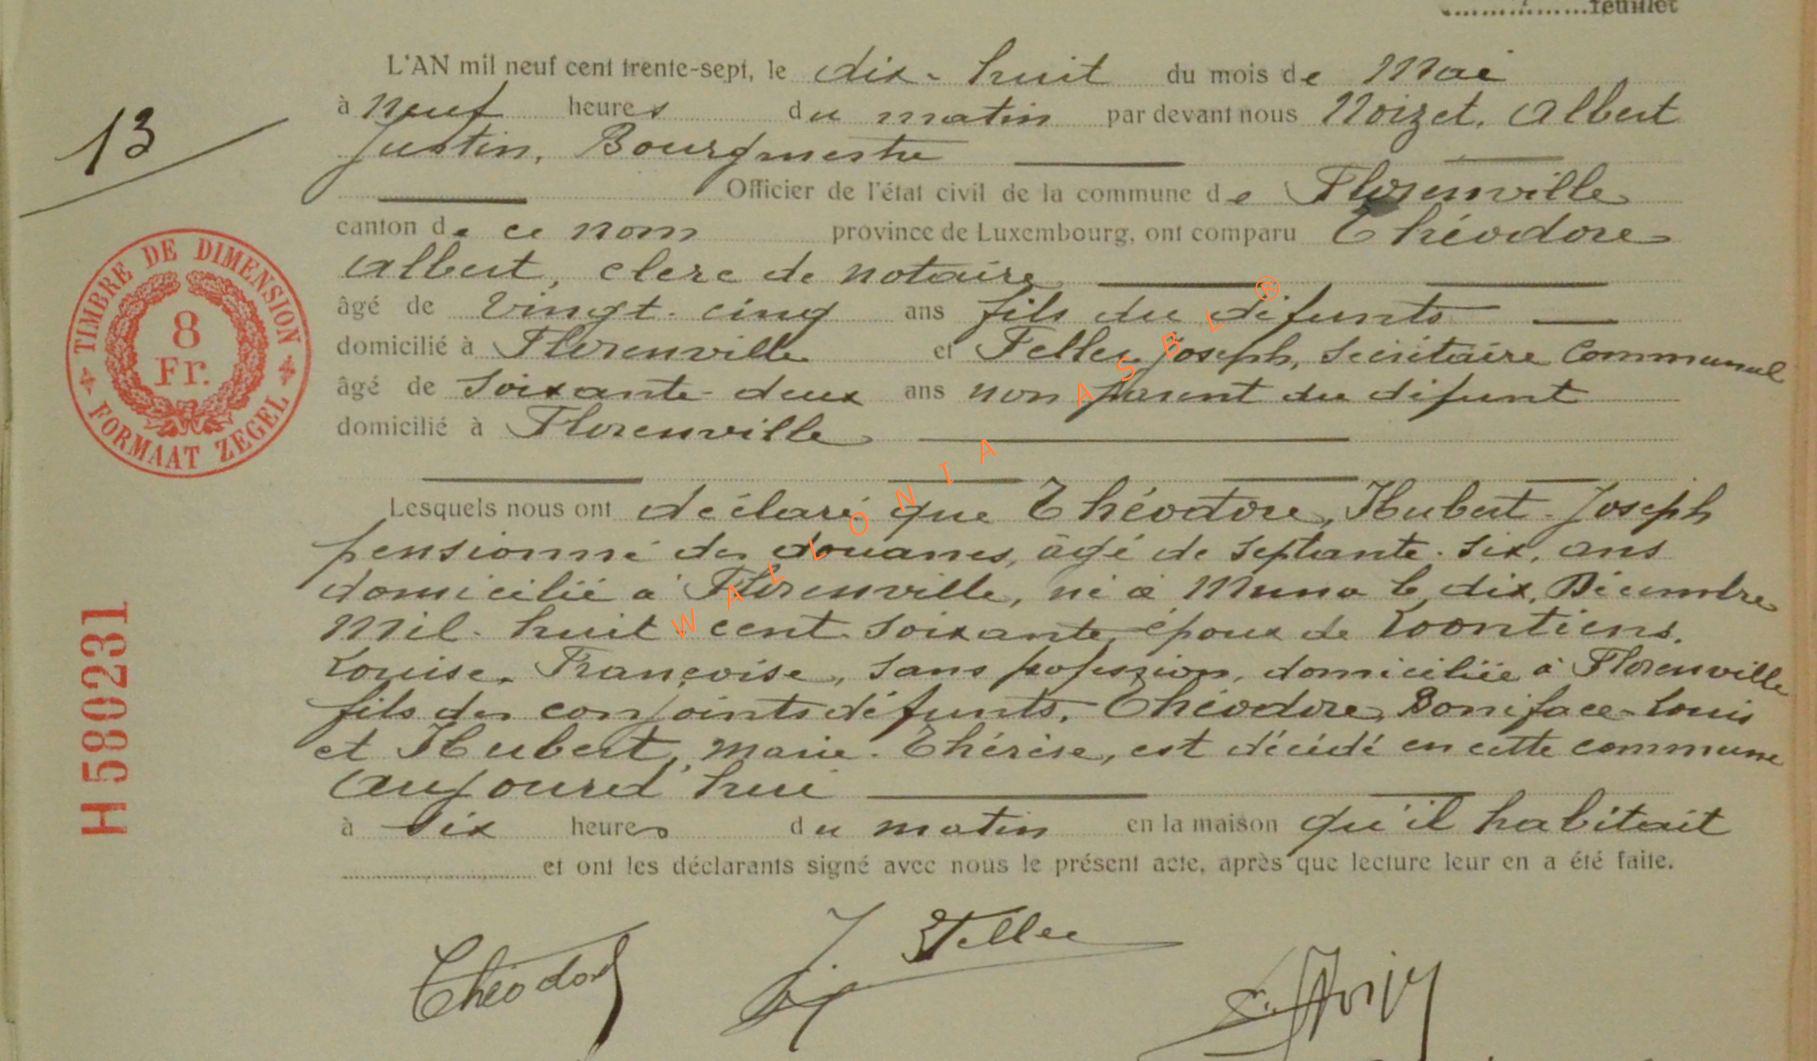 feuillet
L'AN mil neuf cent trente-sept, le dix-huit du mois de Mai
à neuf heures du matin par devant nous Noizet, Albert
13
Justin, Bourgmestre
Officier de l'état civil de la commune de Florenville
canton de ce nom province de Luxembourg, ont comparu Théodore
Albert, clerc de notaire
âgé de vingt-cinq ans fils du défunts
domicilié à Florenville et Feller Joseph, secrétaire communal
âgé de soixante-deux ans non parent du défunt
domicilié à Florenville
TIMBRE DE DIMENSION
8
Fr.
FORMAAT ZEGEL
Lesquels nous ont déclaré que Théodore, Hubert-Joseph
pensionné des douanes, âgé de septante-six, ans
domicilié à Florenville, né à Muno le dix, Décembre
Mil-huit cent soixante, époux de Loontiens,
Louise, Françoise, sans profession, domiciliée à Florenville
fils des conjoints défunts, Théodore, Boniface-Louis
et Hubert, Marie-Thérèse, est décédé en cette commune
aujourd'hui
à six heures du matin en la maison qu'il habitait
et ont les déclarants signé avec nous le présent acte, après que lecture leur en a été faite.
H580231
WALLONIA ASBL ®
Théodore
J Feller